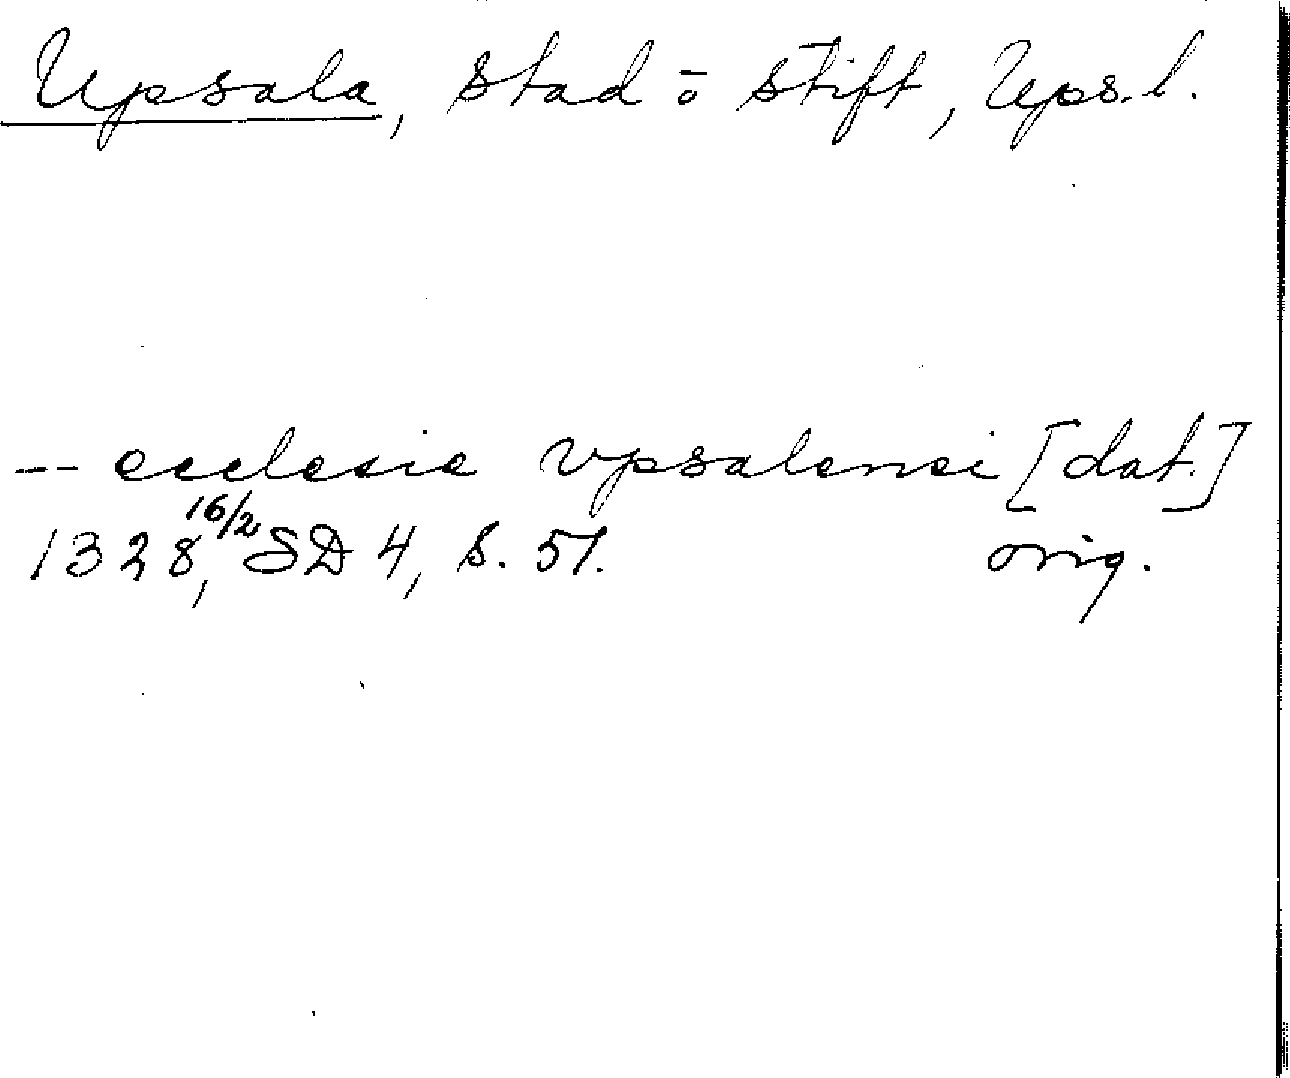 Upsala, stad o stift, Ups. l.
-- ecclesie vpsalensi [dat.]
1328, 16/2 SD 4, s. 51. orig.